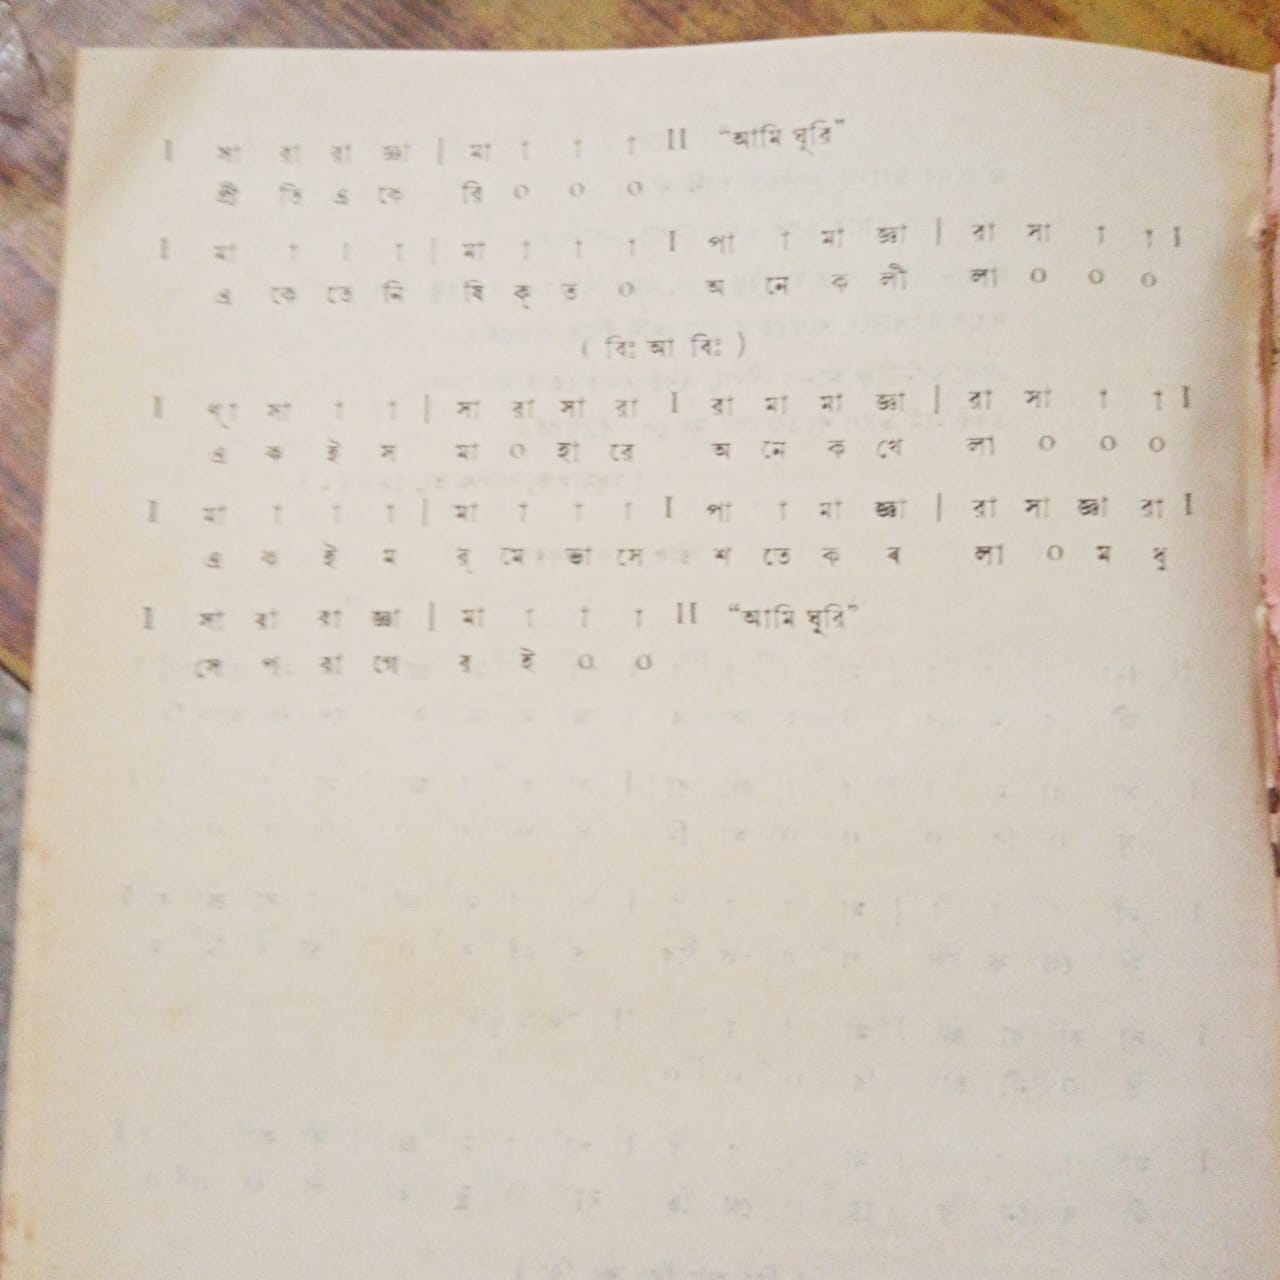 I সা রা রা জ্ঞা | মা া া া II “আমি ঘুরি”
তি এ কে রি ০ ০ ০
I মা া া া | মা া া া I পা া মা জ্ঞা | রা সা া া I
এ কে তে নি বি কৃ ত ০ অ নে ক লী লা ০ ০ ০
( বিঃ আ বিঃ )
I ণ্া সা া া | সা রা সা রা I রা মা মা জ্ঞা | রা সা া া I
এ ক ই স মা ০ হা রে অ নে ক খে লা ০ ০ ০
I মা া া া | মা া া া I পা া মা জ্ঞা | রা সা জ্ঞা রা I
এ ক ই ম র্ মে ভা সে শ তে ক ব লা ০ ম ধু
I সা রা রা জ্ঞা | মা া া া II “আমি ঘুরি”
সে প রা গে র ই ০ ০